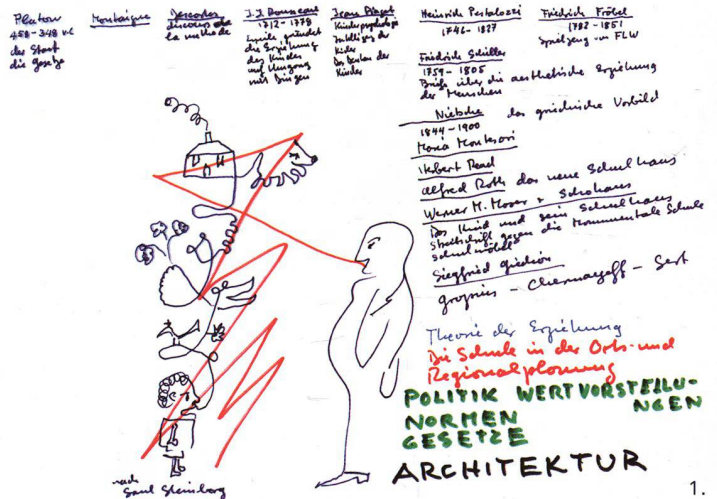 Platon
458-348 v.C
der Staat
die Gesetze
Montaigne
Descartes
discours de
la méthode
J.J. Rousseau
1712-1778
Emile gründet
die Erziehung
des Kindes
auf Umgang
mit Dingen
Jean Piaget
Kinderpsychologe
Intelligenz der
Kinder
Das Denken der
Kinder
Heinrich Pestalozzi
1746-1827
Friedrich Fröbel
1782-1851
Spielzeug von FLW
Friedrich Schiller
1759-1805
Briefe über die aesthetische Erziehung
der Menschen
Nietsche das griechische Vorbild
1844-1900
Maria Montesori
Herbert Read
Alfred Roth das neue Schulhaus
Werner M. Moser + Schohaus
Das Kind und sein Schulhaus
Streitschrift gegen die Monumentale Schule
Siegfried Giedion
Gropius - Chermayeff - Sert
Theorie der Erziehung
Die Schule in der Orts- und
Regionalplanung
POLITIK WERTVORSTELLU-
NGEN
NORMEN
GESETZE
ARCHITEKTUR
nach
Saul Steinberg
1.